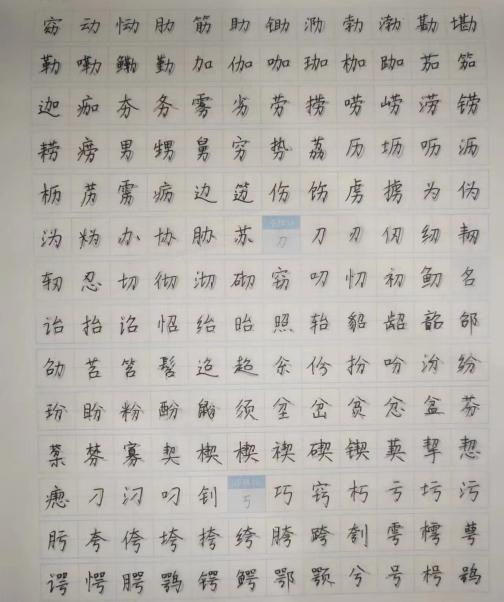 窈动恸肋筋助锄泐勃渤勘堪
勒嘞鳓勤加伽咖珈枷跏茄笳
迦痂夯务雾劣劳捞唠崂涝铹
耢痨男甥舅穷势荔历坜呖沥
枥苈雳疬边笾伤饬虏掳为伪
沩办协胁苏刀刀刃仞纫韧
轫忍切彻沏砌窃叨忉初鱽召
诏招沼怊绍昭照轺貂龆韶邵
劭苕笤髫迢超尔份扮吩汾纷
玢盼粉酚鼢颁坌岔贫忿盆芬
棻棼寡契楔楔禊碶锲葜挈恝
瘛刁汈叼钊丂巧窍朽亏圬污
肟夸侉垮挎绔胯跨刳雩樗萼
谔愕腭鹗锷鳄鄂颚兮号枵鸮